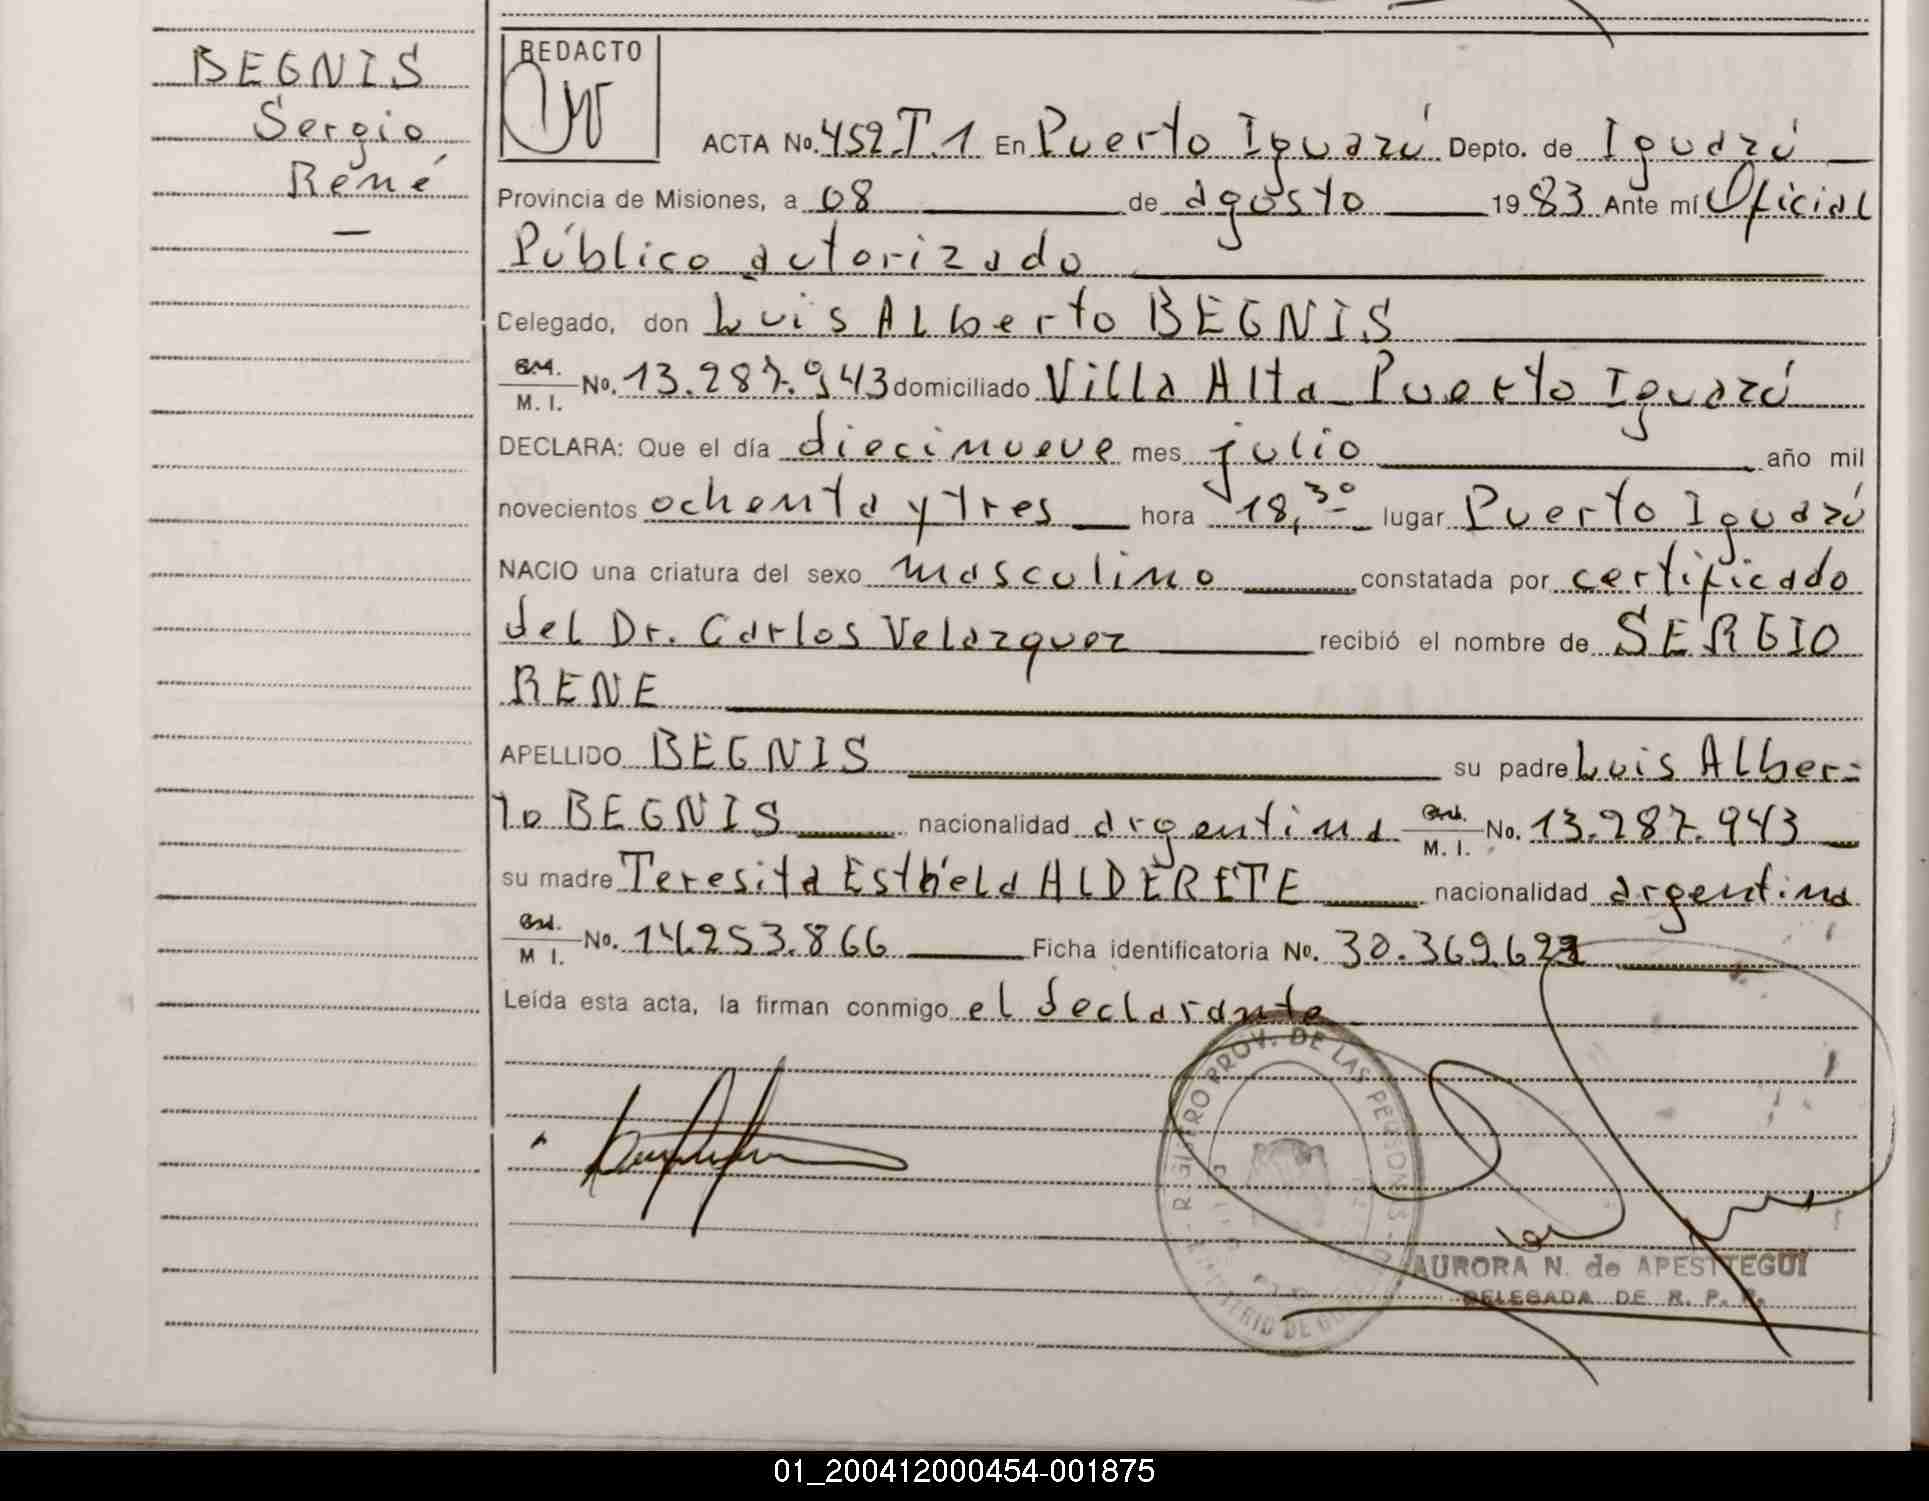 BEGNIS
Sergio
René
—
REDACTO
ACTA No. 452 T. 1 En Puerto Iguazú Depto. de Iguazú
Provincia de Misiones, a 08 de agosto 1983 Ante mí Oficial
Público autorizado
Celegado, don Luis Alberto BEGNIS
M. I. No. 13.287.943 domiciliado Villa Alta Puerto Iguazú
DECLARA: Que el día diecinueve mes julio año mil
novecientos ochenta y tres hora 18,30 lugar Puerto Iguazú
NACIO una criatura del sexo masculino constatada por certificado
del Dr. Carlos Velazquez recibió el nombre de SERGIO
RENE
APELLIDO BEGNIS su padre Luis Alber-
to BEGNIS nacionalidad argentina M. I. No. 13.287.943
su madre Teresita Esthela ALDERETE nacionalidad argentina
M I. No. 14.253.866 Ficha identificatoria No. 30.369.622
Leída esta acta, la firman conmigo el declarante
REGISTRO PROV. DE LAS PERSONAS
AURORA N. de APESTEGUI
DELEGADA DE R. P. P.
01_200412000454-001875